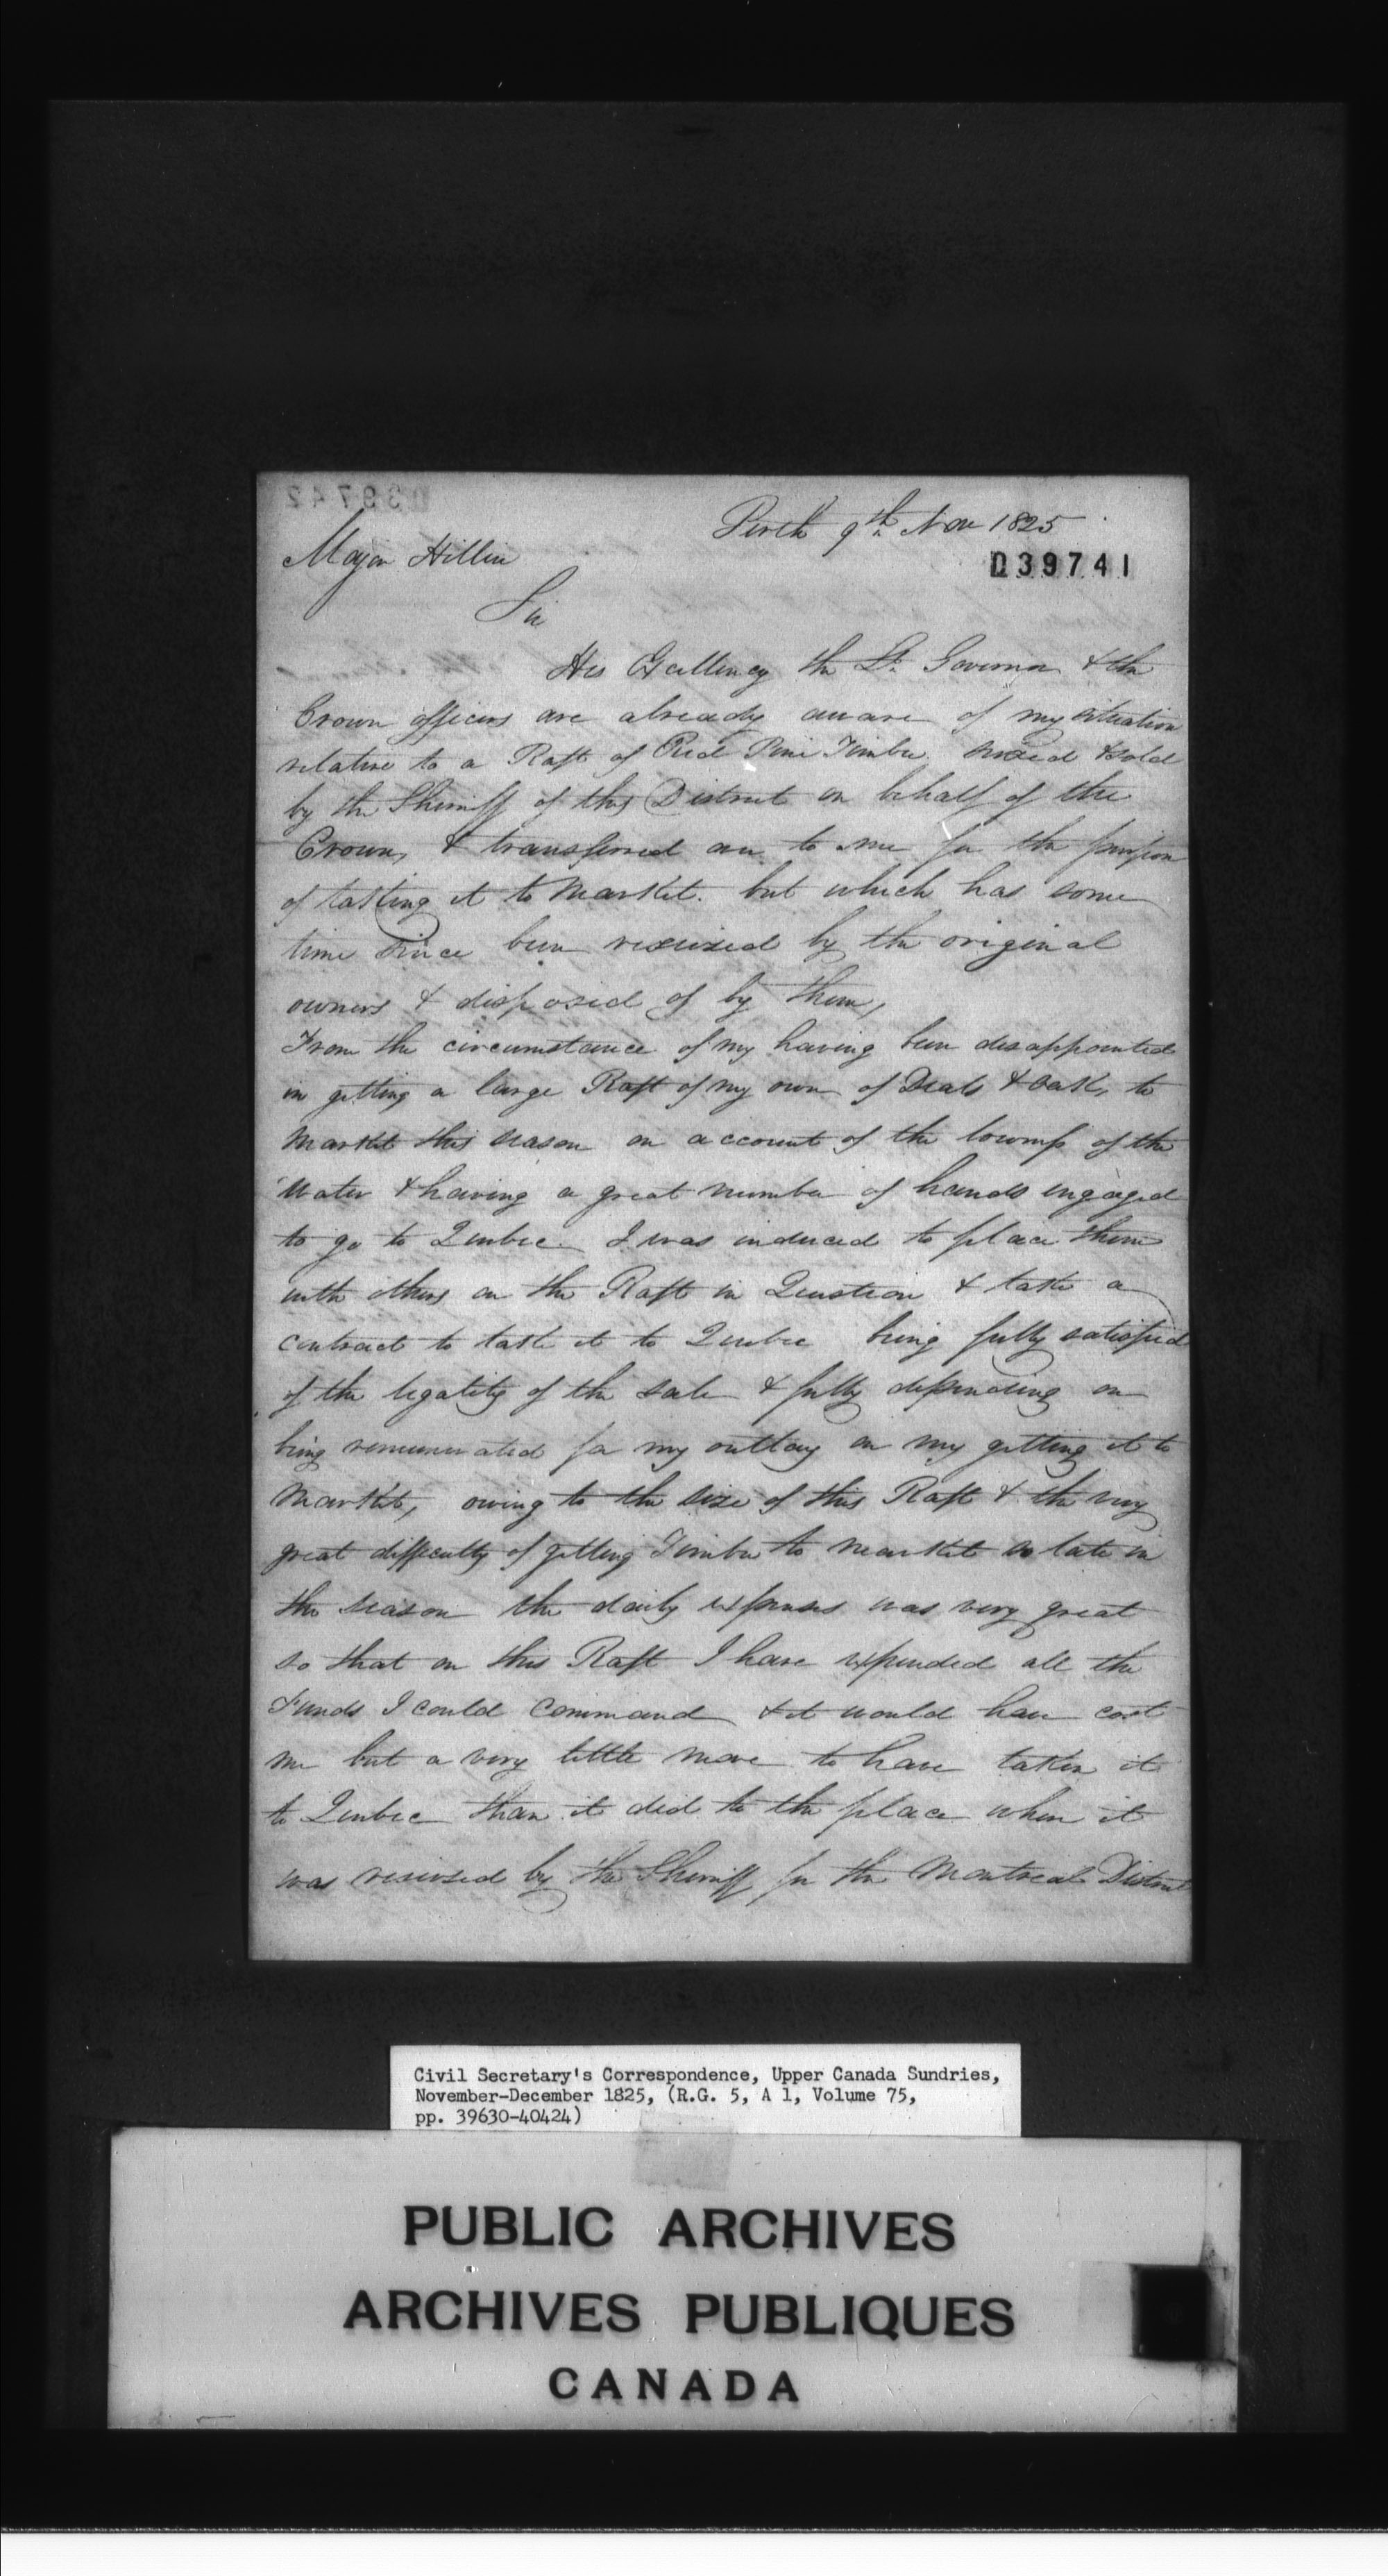 Perth 9th Nov 1825
Major Hillier
D39741
Sir
His Excellency the Lt. Governor & the
Crown officers are already aware of my situation
relative to a Raft of Red Pine Timber seized & sold
by the Sheriff of this District on behalf of the
Crown, & transferred over to me for the purpose
of taking it to Market. but which has some
time since been reseized by the original
owners & disposed of by them,
From the circumstance of my having been disappointed
in getting a large Raft of my own of Deals & Oak, to
Market this season on account of the lowness of the
Water & having a great number of hands engaged
to go to Quebec I was induced to place them
with others on the Raft in Question & take a
contract to take it to Quebec being fully satisfied
of the legality of the sale & fully depending on
being remunerated for my outlay on my getting it to
Market, owing to the size of this Raft & the very
great difficulty of getting Timber to market so late in
the season the daily expenses was very great
so that on this Raft I have expended all the
Funds I could command & it would have cost
me but a very little more to have taken it
to Quebec than it did to the place when it
was reseized by the Sheriff for the Montreal District
Civil Secretary's Correspondence, Upper Canada Sundries,
November-December 1825, (R.G. 5, A 1, Volume 75,
pp. 39630-40424)
PUBLIC ARCHIVES
ARCHIVES PUBLIQUES
CANADA